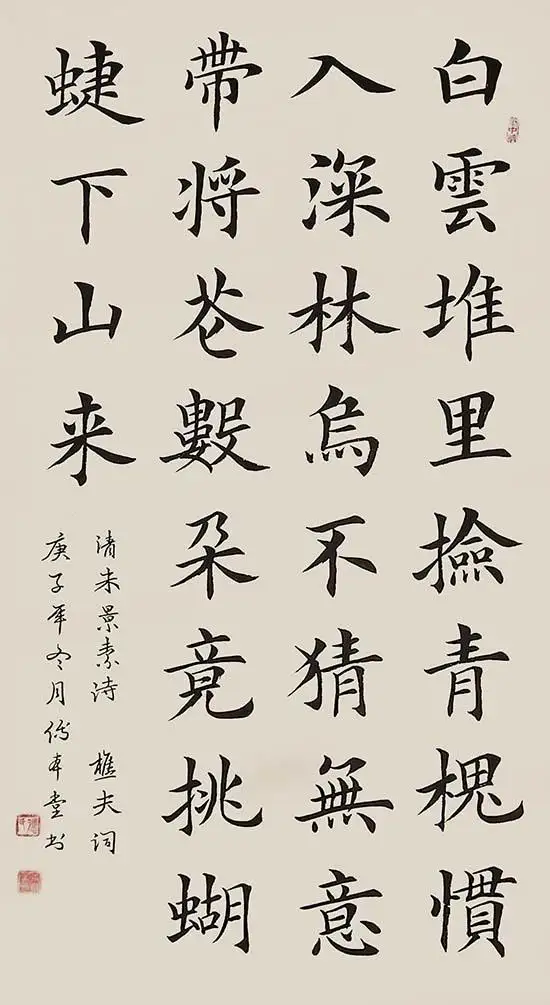 白雲堆里撿青槐慣
入深林烏不猜無意
帶將花數朵竟挑蝴
蜨下山来
清朱景素诗 樵夫词
庚子年冬月堂书